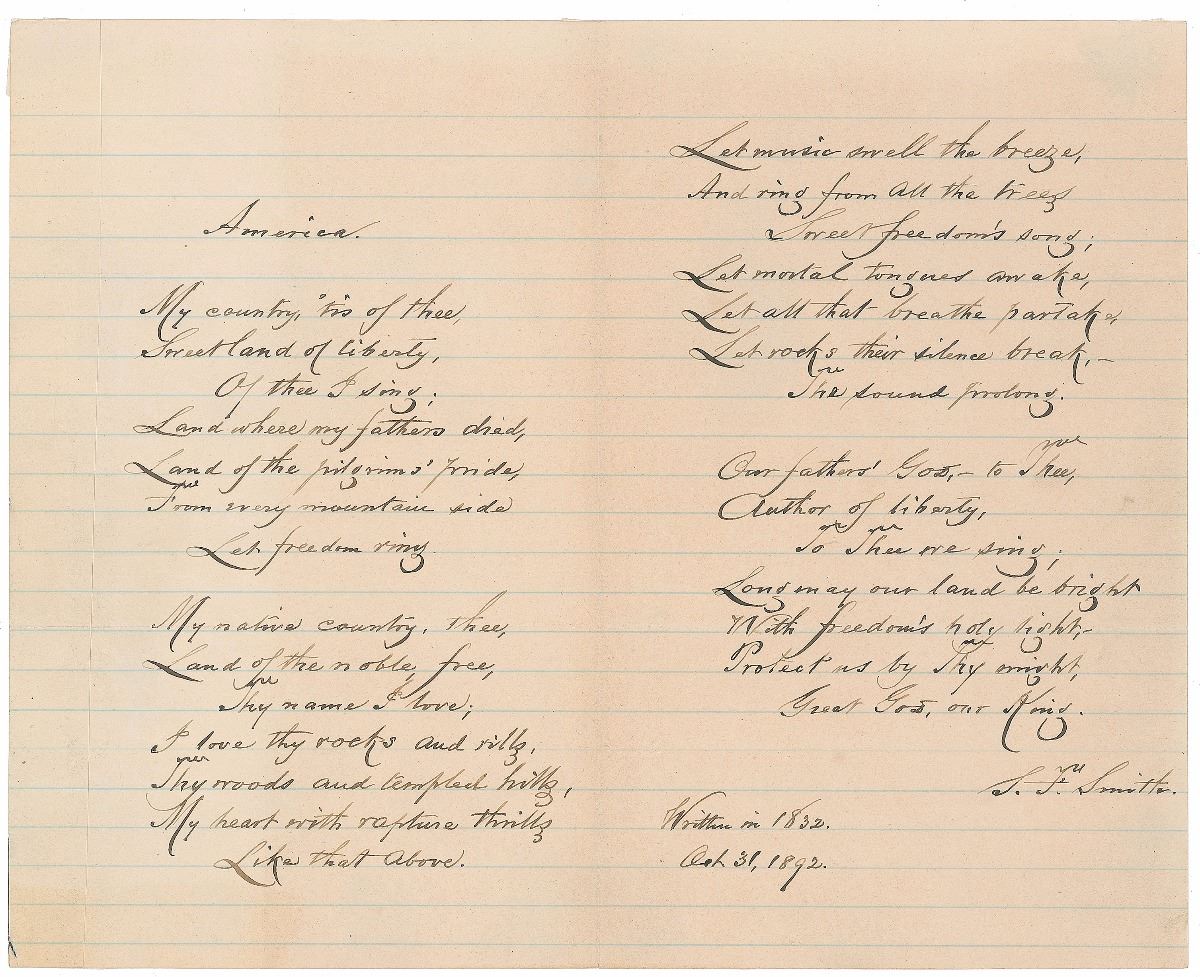 America.
My country, 'tis of thee,
Sweet land of liberty,
Of thee I sing;
Land where my fathers died,
Land of the pilgrims' pride,
From every mountain side
Let freedom ring.
My native country, thee,
Land of the noble, free,
Thy name I love;
I love thy rocks and rills,
Thy woods and templed hills,
My heart with rapture thrills
Like that above.
Let music swell the breeze,
And ring from all the trees
Sweet freedom's song;
Let mortal tongues awake,
Let all that breathe partake,
Let rocks their silence break,—
The sound prolong.
Our fathers' God,— to Thee,
Author of liberty,
To Thee we sing;
Long may our land be bright
With freedom's holy light,—
Protect us by Thy might,
Great God, our King.
S. F. Smith.
Written in 1832.
Oct. 31, 1892.